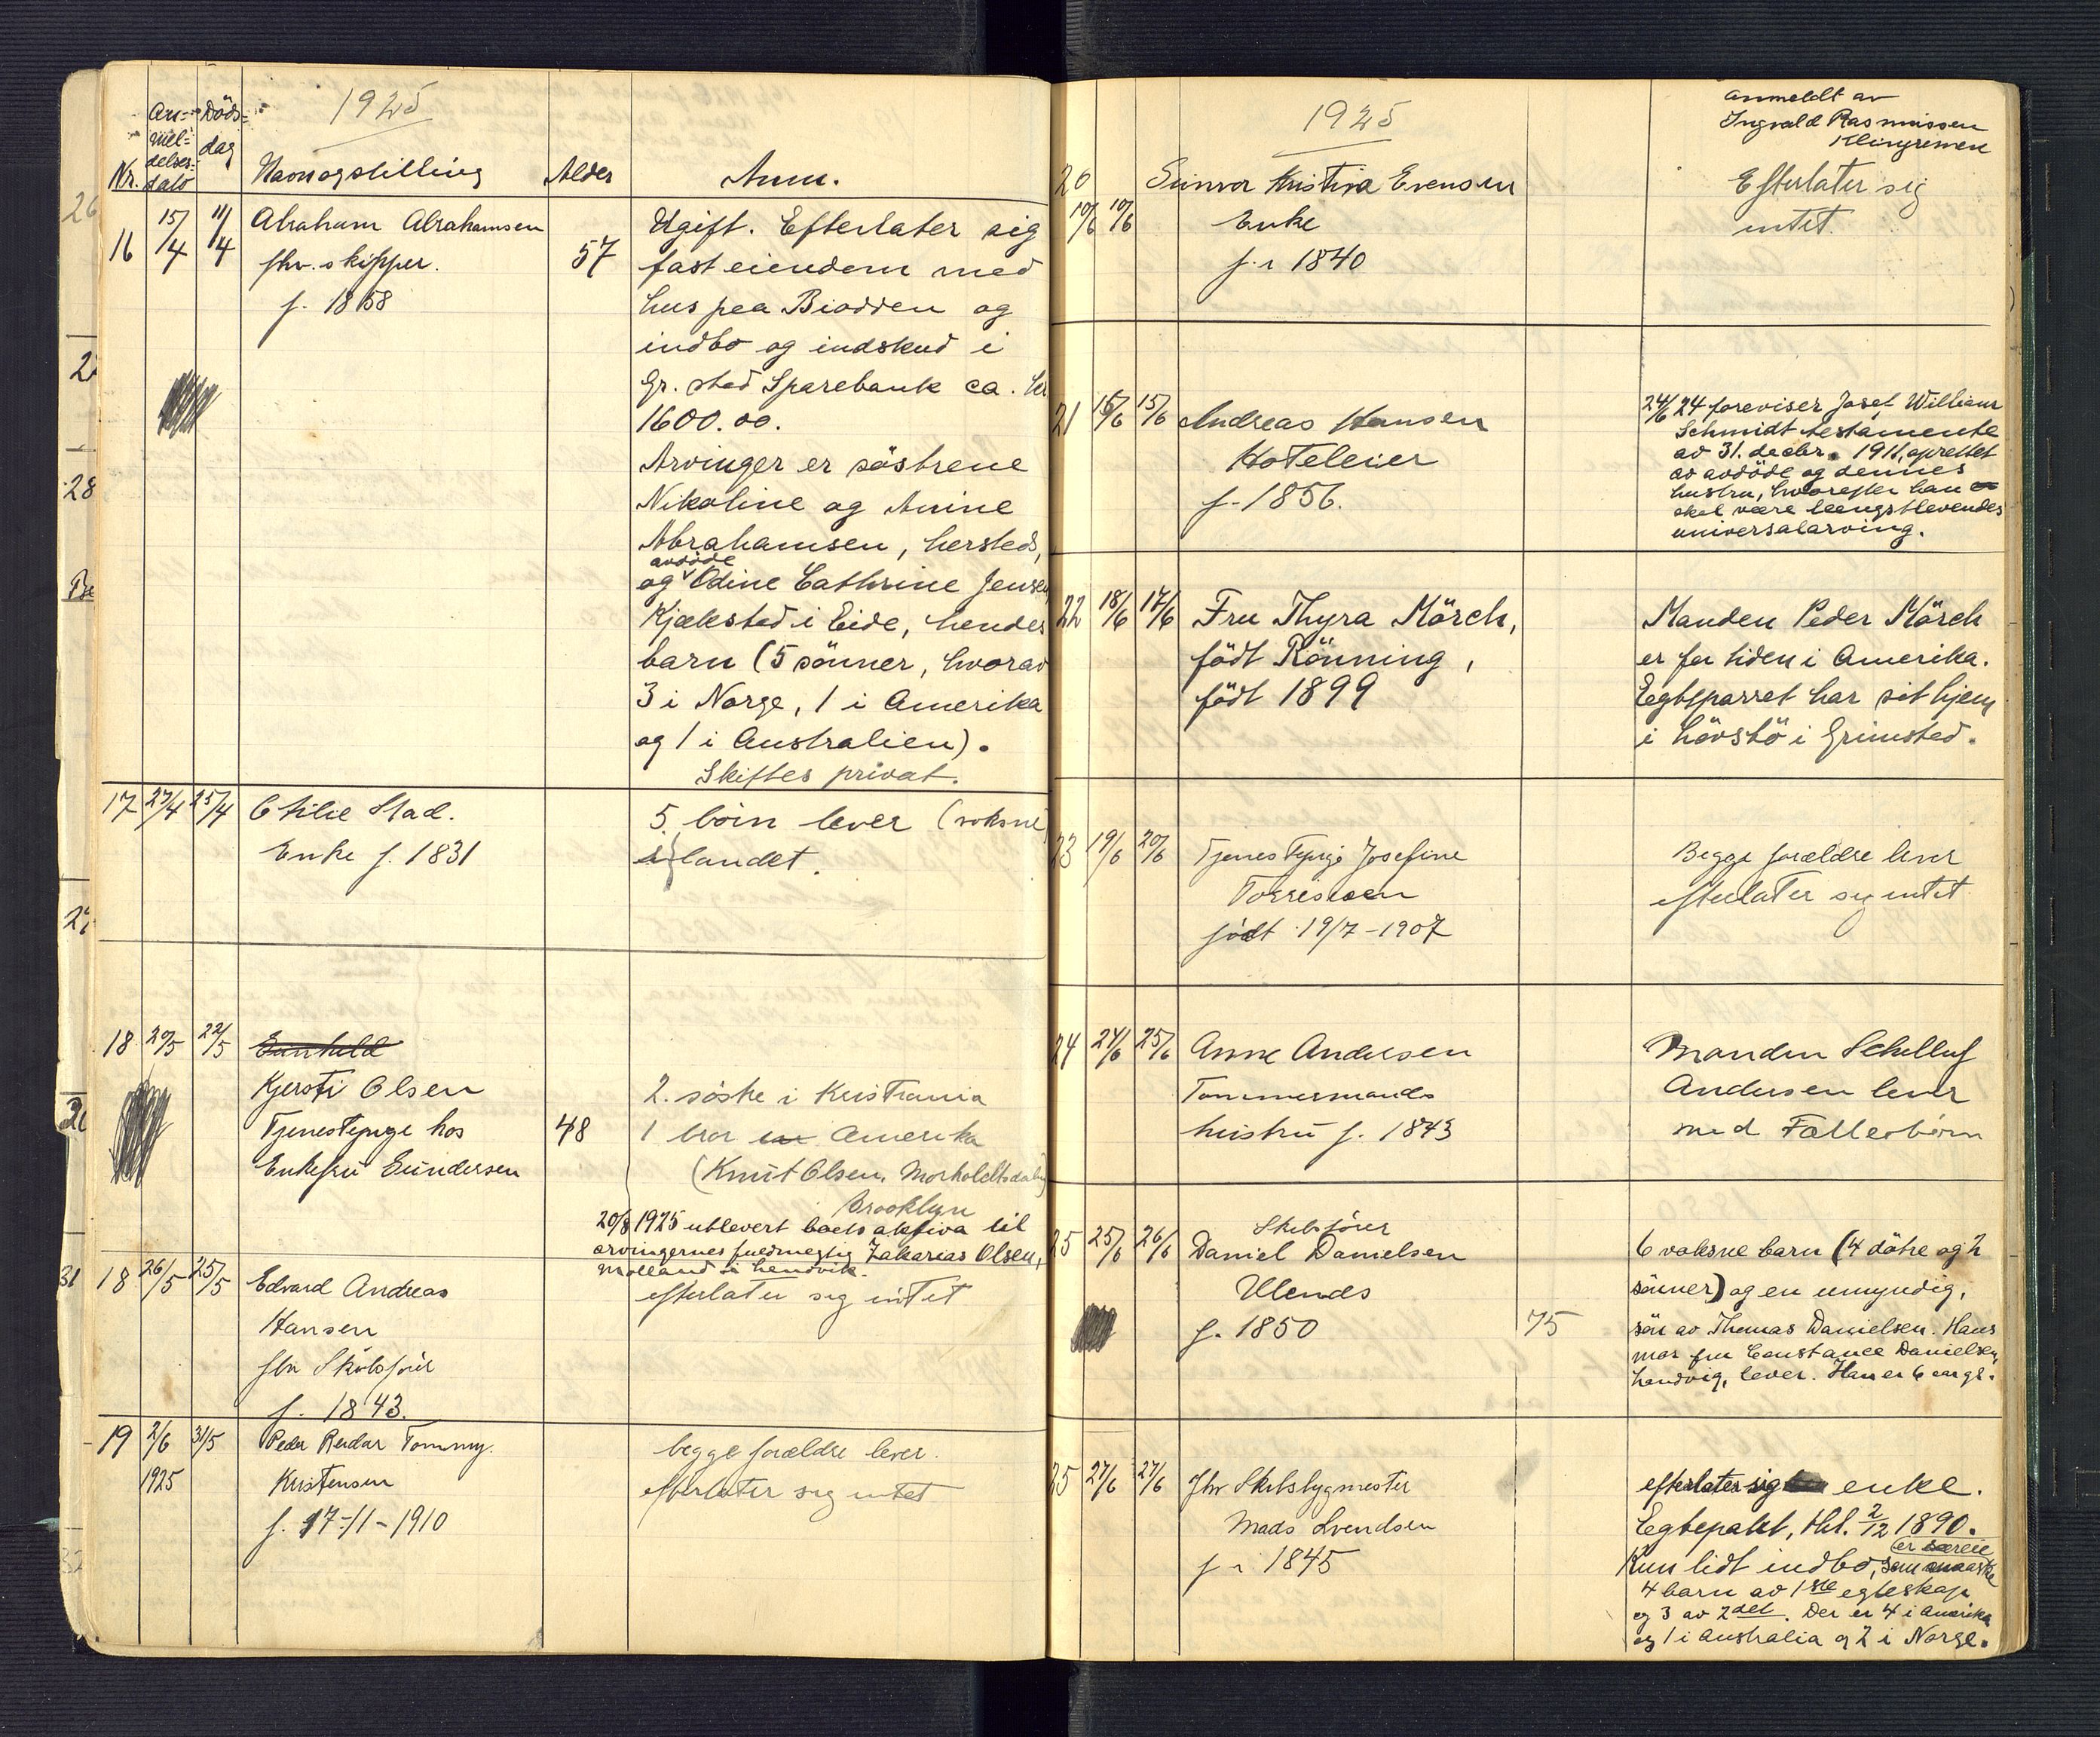 1925
An-
mel-
delses-
dato
Döds-
dag
Nr.
Navn og stilling
Alder
Anm.
16 15/4 11/4 Abraham Abrahamsen
fhv. skipper.
f. 1858
57
Ugift. Efterlater sig
fast eiendom med
hus paa Biodden og
indbo og indskud i
Gr.stad Sparebank ca. kr
1600.00.
Arvinger er söstrene
Nikoline og Anine
Abrahamsen, hersteds,
avdöde
og Odine Cathrine Jensen
Kjælestad i Eide, hendes
barn (5 sönner, hvorav
3 i Norge, 1 i Amerika
og 1 i Australien).
Skiftes privat.
17 27/4 25/4 Otilie Stad.
Enke f. 1831
5 börn lever (voksne)
i landet.
18 20/5 22/5 Gunhild
Kjersti Olsen
Tjenestepige hos
Enkefru Gundersen
48
2. söstre i Kristiania
1 bror Amerika
(Knut Olsen,
Brooklyn
20/8 1925 utlevert boets aktiva til
arvingernes fuldmegtig Zakarias Olsen,
Molland i Landvik.
18 26/5 25/5 Edvard Andreas
Hansen
fhv Skibsförer
f. 1843.
efterlater sig intet
19 2/6 31/5 Peder Reidar Tommy.
1925 Kristensen
f. 17-11-1910
begge forældre lever.
efterlater sig intet
1925
Anmeldt av
Ingvald Rasmussen
20 Gunvor Kristina Evensen
10/6 10/6 Enke
f. i 1840
Efterlater sig
intet.
21 16/6 15/6 Andreas Hansen
Hoteleier
f. 1856.
24/6 24 foreviser Josef William
Schmidt testamente
av 31. decbr. 1911, oprettet
av avdöde og dennes
hustru, hvorefter han
skal være længstlevendes
universalarving.
22 18/6 17/6 Fru Thyra Mörch,
födt Rönning,
födt 1899
Manden Peder Mörch
er for tiden i Amerika.
Egteparret har sit hjem
i Lövstö i Grimstad.
23 19/6 20/6 Tjenestepige Josefine
Torrissen
födt 19/7-1907
Begge forældre lever
efterlater sig intet
24 24/6 25/6 Anne Andersen
Tommermands
hustru f. 1843
Manden
Andersen lever
med Fællesbörn
25 25/6 26/6 Skibsförer
Daniel Danielsen
f. 1850
75
6 voksne barn (4 dötre og 2
sönner) og en umyndig,
sön av Thomas Danielsen. Hans
mor fru Constance Danielsen,
Landvig, lever. Han er 6 aar gl.
25 27/6 27/6 Fhv Skibsbygmester
Mads Svendsen
f i 1845
efterlater sig enke.
Egtepakt, thl. 2/12 1890.
er særeie
Kun lidt indbo, som
4 barn av 1ste egteskap
og 3 av 2det. Der er 4 i Amerika
og 1 i Australia og 2 i Norge.